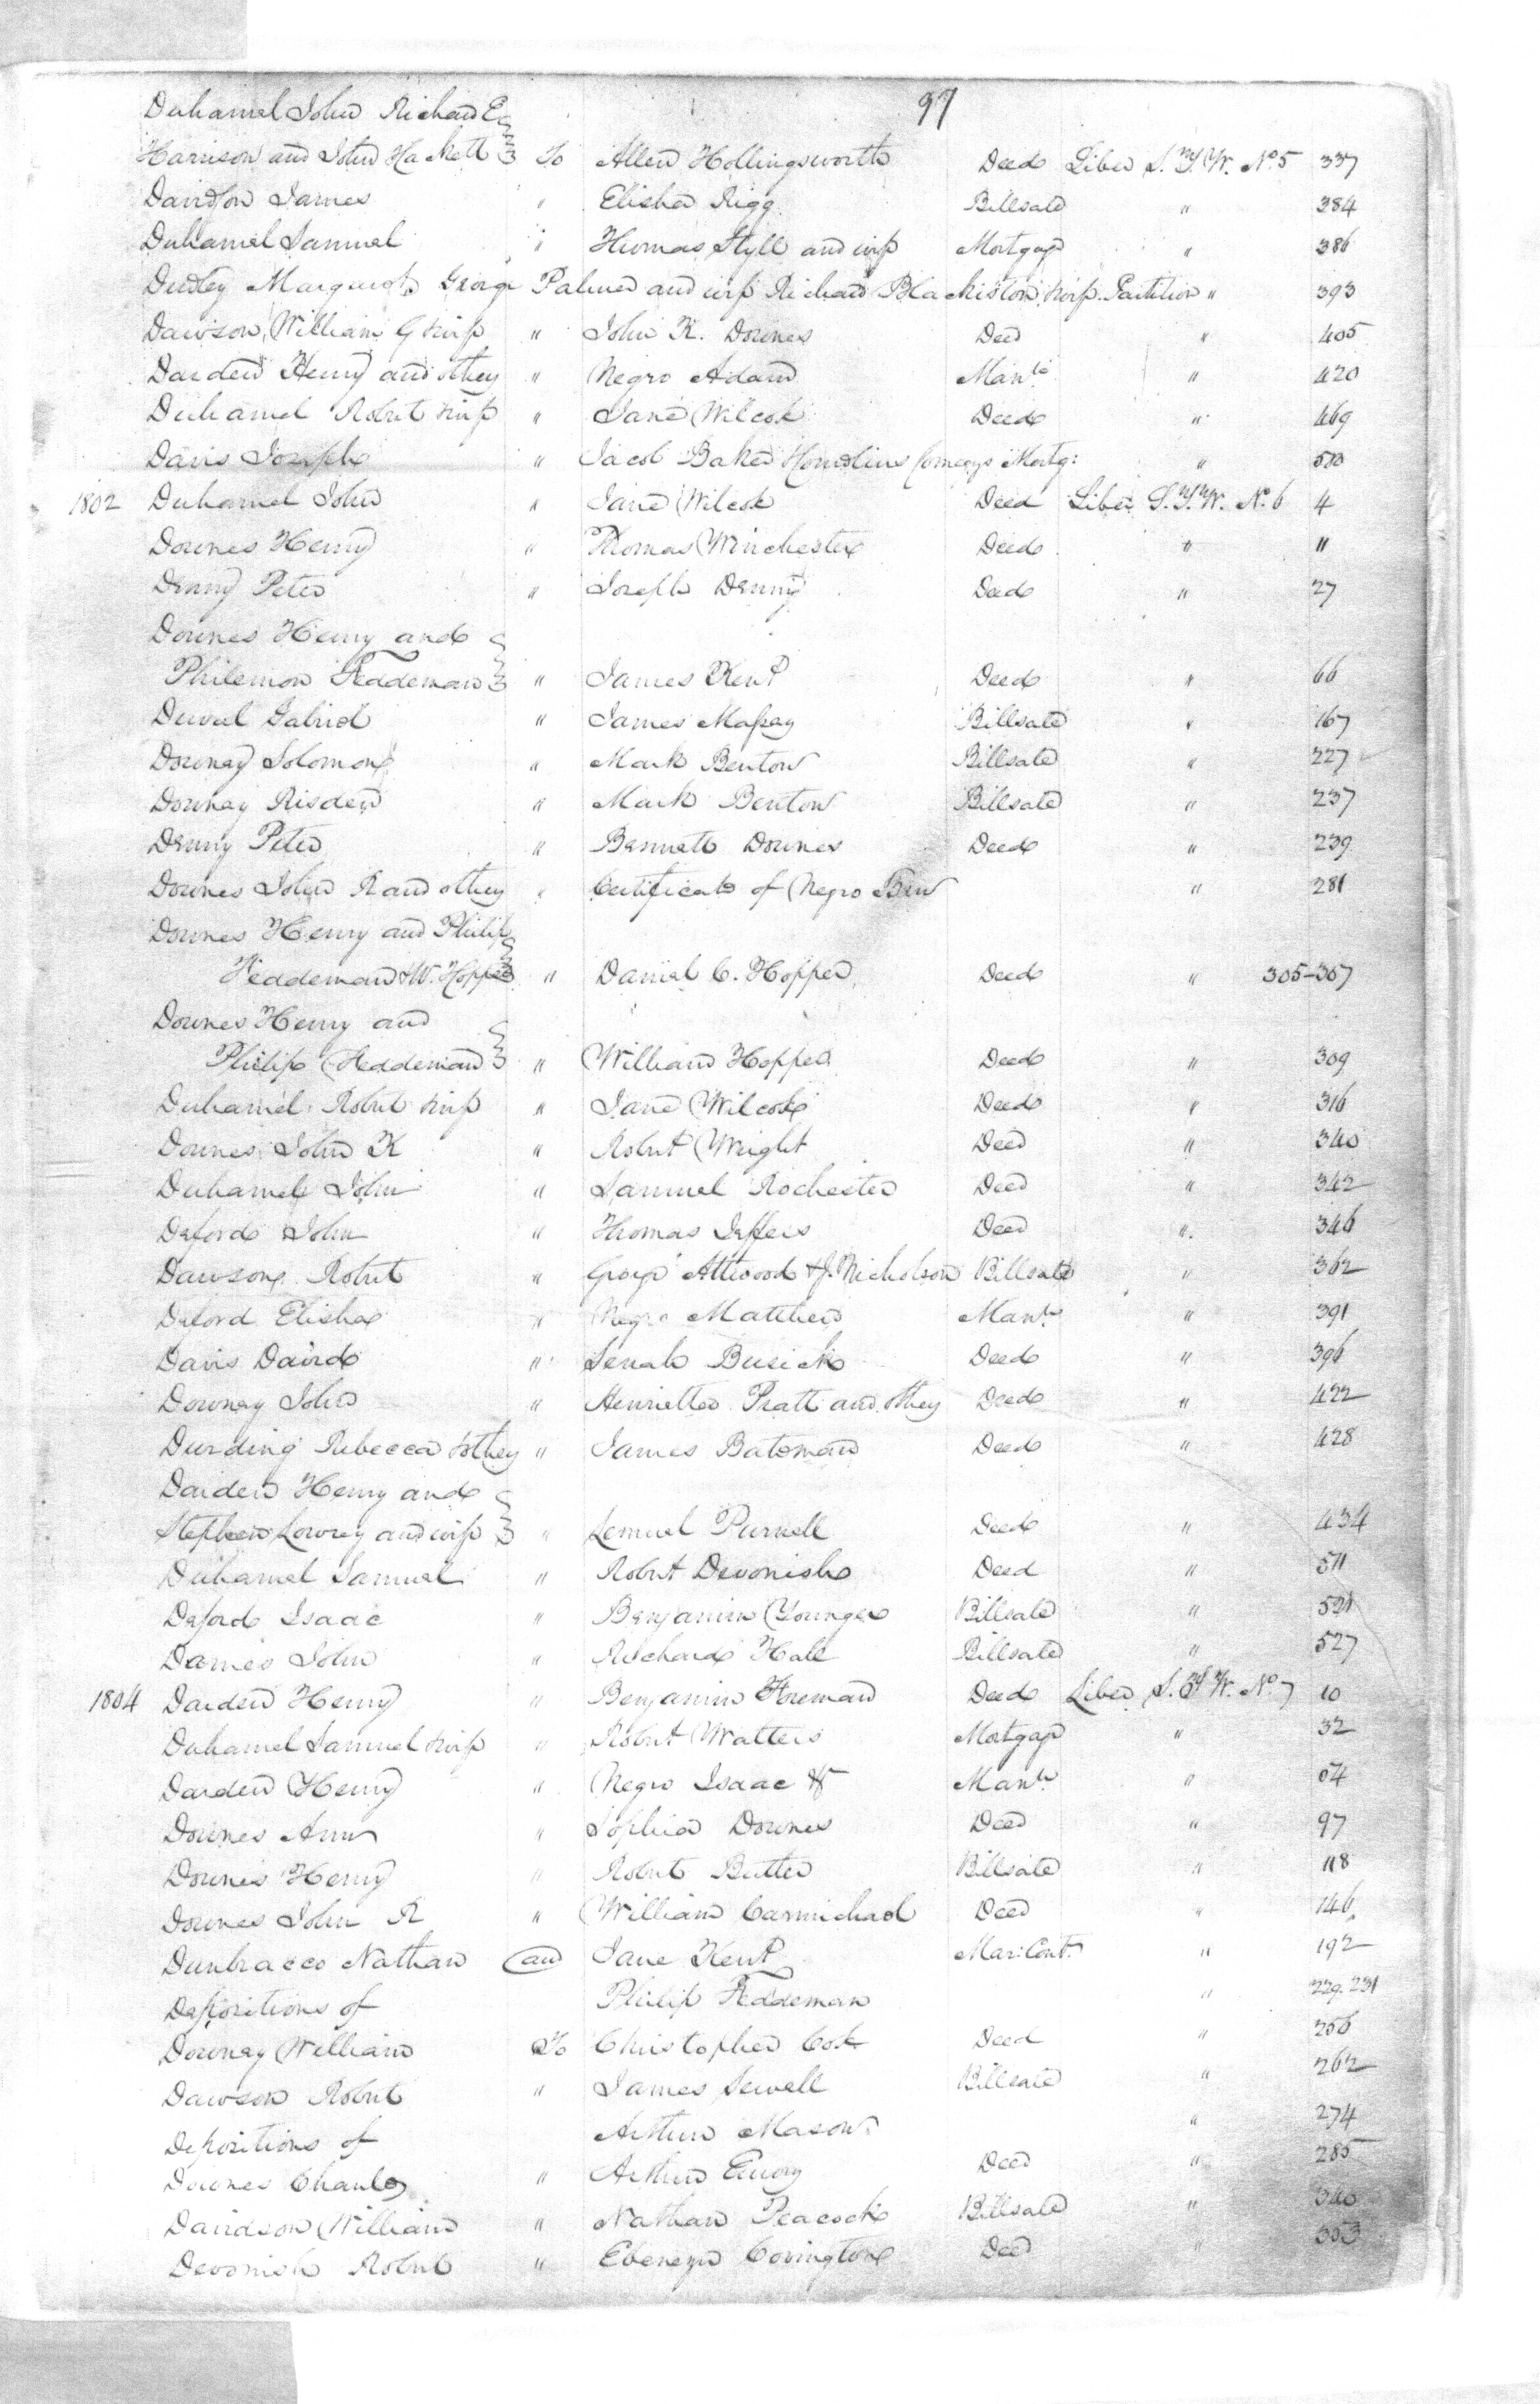 97
Duhamel John Richard E
Harrison and John Hackett To Allen Hollingsworth Deed Liber S.T.W. No. 5 337
Davidson James " Elisha Rigg Billsale " 384
Duhamel Samuel " Thomas Hyll and wife Mortgage " 386
Dudley Margaret, George Palmer and wife Richard Blackiston & wife Partition " 393
Dawson William G & wife " John K. Downes Deed " 405
Darden Henry and others " Negro Adam Mann " 420
Duhamel Robert & wife " Jane Wilcox Deed " 469
Davis Joseph " Jacob Baker & Cornelius Comegys Mortg: " 510
1802 Duhamel John " Jane Wilcox Deed Liber S.T.W. No. 6 4
Downes Henry " Thomas Winchester Deed " 11
Denny Peter " Joseph Denny Deed " 27
Downes Henry and
Philemon Feddeman " James Kent Deed " 66
Duval Gabriel " James Massey Billsale " 167
Downey Solomon " Mark Benton Billsale " 227
Downey Risden " Mark Benton Billsale " 237
Denny Peter " Bennett Downes Deed " 239
Downes John R and others " Certificate of Negro Ben " 281
Downes Henry and Philip
Feddeman & W. Hopper " Daniel C. Hopper Deed " 305-307
Downes Henry and
Philip Feddeman " William Hopper Deed " 309
Duhamel Robert & wife " Jane Wilcox Deed " 316
Downes John K " Robert Wright Deed " 340
Duhamel John " Samuel Rochester Deed " 342
Deford John " Thomas Jeffers Deed " 346
Dawson Robert " George Attwood & J. Nicholson Billsale " 362
Deford Elisha " Negro Matthew Mann " 391
Davis David " Senah Busick Deed " 396
Downey John " Henrietta Pratt and others Deed " 422
Durding Rebecca & others " James Bateman Deed " 428
Darden Henry and
Stephen Lowrey and wife " Lemuel Purnell Deed " 434
Duhamel Samuel " Robert Devonish Deed " 511
Deford Isaac " Benjamin Younger Billsale " 521
Dames John " Richard Hall Billsale " 527
1804 Darden Henry " Benjamin Foreman Deed Liber S.T.W. No. 7 10
Duhamel Samuel & wife " Robert Walters Mortgage " 32
Darden Henry " Negro Isaac & Mann " 54
Downes Ann " Sophia Downes Deed " 97
Downes Henry " Robert Butler Billsale " 118
Downes John R " William Carmichael Deed " 146
Dunbracco Nathan and Jane Kent Mar: Cont. " 192
Depositions of Philip Feddeman " 229.231
Downey William To Christopher Cox Deed " 256
Dawson Robert " James Sewell Billsale " 262
Depositions of Arthur Mason " 274
Downes Charles " Arthur Emory Deed " 285
Davidson William " Nathan Peacock Billsale " 340
Devonish Robert " Ebenezer Covington Deed " 353